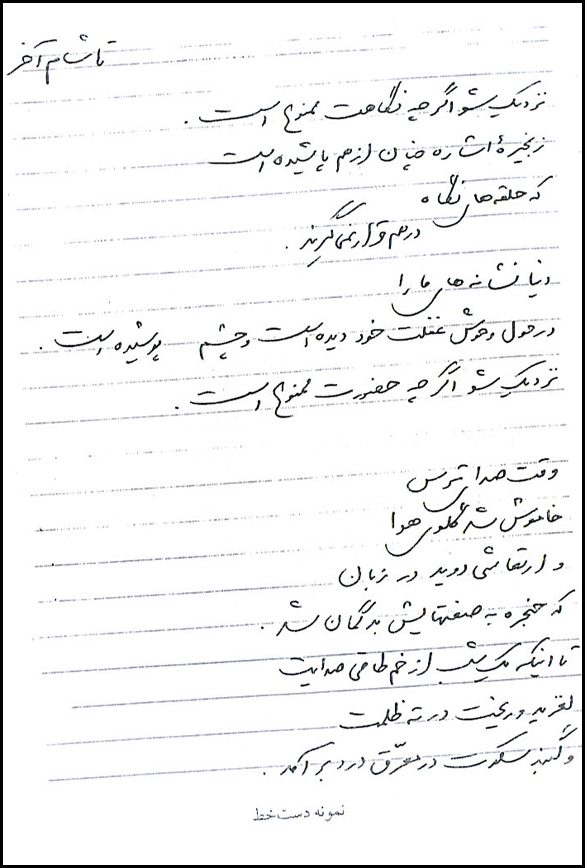 تا شام آخر
نزدیک شو اگر چه نگاهت ممنوع است.
زنجیرهٔ اشاره چنان از هم پاشیده است
که حلقه‌های نگاه
در هم قرار نمی‌گیرند.
دنیا نشانه‌های ما را
در حول و حوش غفلت خود دیده است و چشم پوشیده است.
نزدیک شو اگر چه حضورت ممنوع است.
وقت صدای ترس
خاموش شد گلوی هوا
و ارتعاشی دوید در زبان
که حنجره به صفتهایش بدگمان شد.
تا اینکه یک شب از خم طاقی صدایت
لغزید و ریخت در ته ظلمت
و گنبد سکوت در معرّق درد برآمد.
نمونه دست‌خط